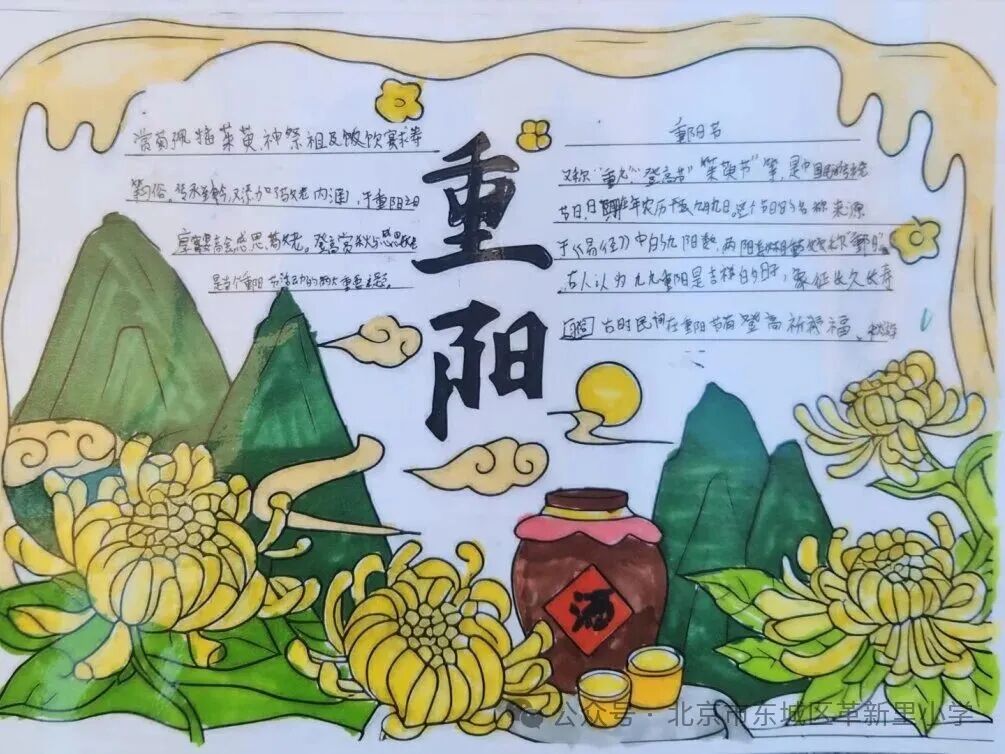 赏菊佩插茱萸、神祭祖及饮宴求寿
等习俗。传承至今,又添加了敬老内涵,于重阳之日
享宴高会感恩敬老。登高赏秋与感恩敬老
是当今重阳节活动的两大重要主题。
重阳
重阳节
又称"重九""登高节""茱萸节"等,是中国传统
节日,日期在每年农历九月九日。这个节日的名称来源
于《易经》中的九阳数,两阳
古人认为九九重阳是吉祥的日子,象征长久长寿
古时民间在重阳节有登高祈福、
酒
公众号·北京市东城区革新里小学